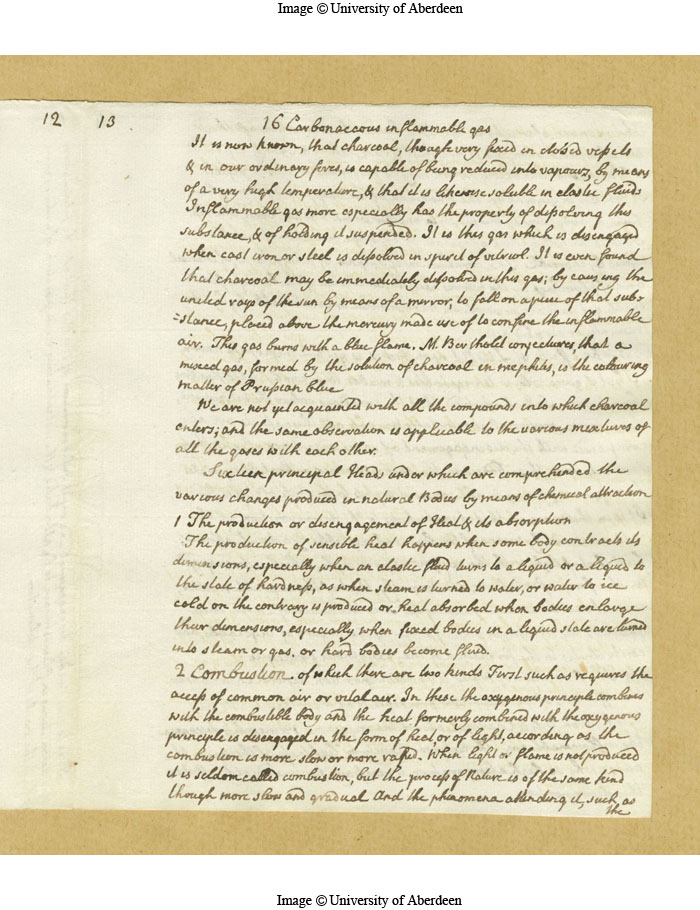 Image © University of Aberdeen
12 13
16 Carbonaceous inflammable gas
It is now known, that charcoal, though very fixed in closed vessels
& in our ordinary fires, is capable of being reduced into vapours, by means
of a very high temperature, & that it is likewise soluble in elastic fluids
Inflammable gas more especially has the property of dissolving this
substance, & of holding it suspended. It is this gas which is disengaged
when cast iron or steel is dissolved in spirit of vitriol. It is even found
that charcoal may be immediately dissolved in this gas; by causing the
united rays of the sun by means of a mirror, to fall on a piece of that subs=
=stance, placed above the mercury made use of to confine the inflammable
air. This gas burns with a blue flame. M. Berthold conjectures, that a
mixed gas, formed by the solution of charcoal in mephitis, is the colouring
matter of Prussian blue
We are not yet acquainted with all the compounds into which charcoal
enters; and the same observation is applicable to the various mixtures of
all the gases with each other.
Sixteen principal Heads under which are comprehended the
various changes produced in natural Bodies by means of chemical attraction
1 The production or disengagement of Heat & its absorption
The production of sensible heat happens when some body contracts its
dimensions, especially when an elastic fluid turns to a liquid or a liquid to
the state of hardness, as when steam is turned to water, or water to ice
cold on the contrary is produced or heat absorbed when bodies enlarge
their dimensions, especially when fixed bodies in a liquid state are turned
into steam or gas, or hard bodies become fluid.
2 Combustion. of which there are two kinds First such as requires the
access of common air or vital air. In these the oxygenous principle combines
with the combustible body and the heat formerly combined with the oxygenous
principle is disengaged in the form of heat or of light, according as the
combustion is more slow or more rapid. When light or flame is not produced
it is seldom called combustion, but the process of Nature is of the same kind
though more slow and gradual And the phenomena attending it, such as
the
Image © University of Aberdeen